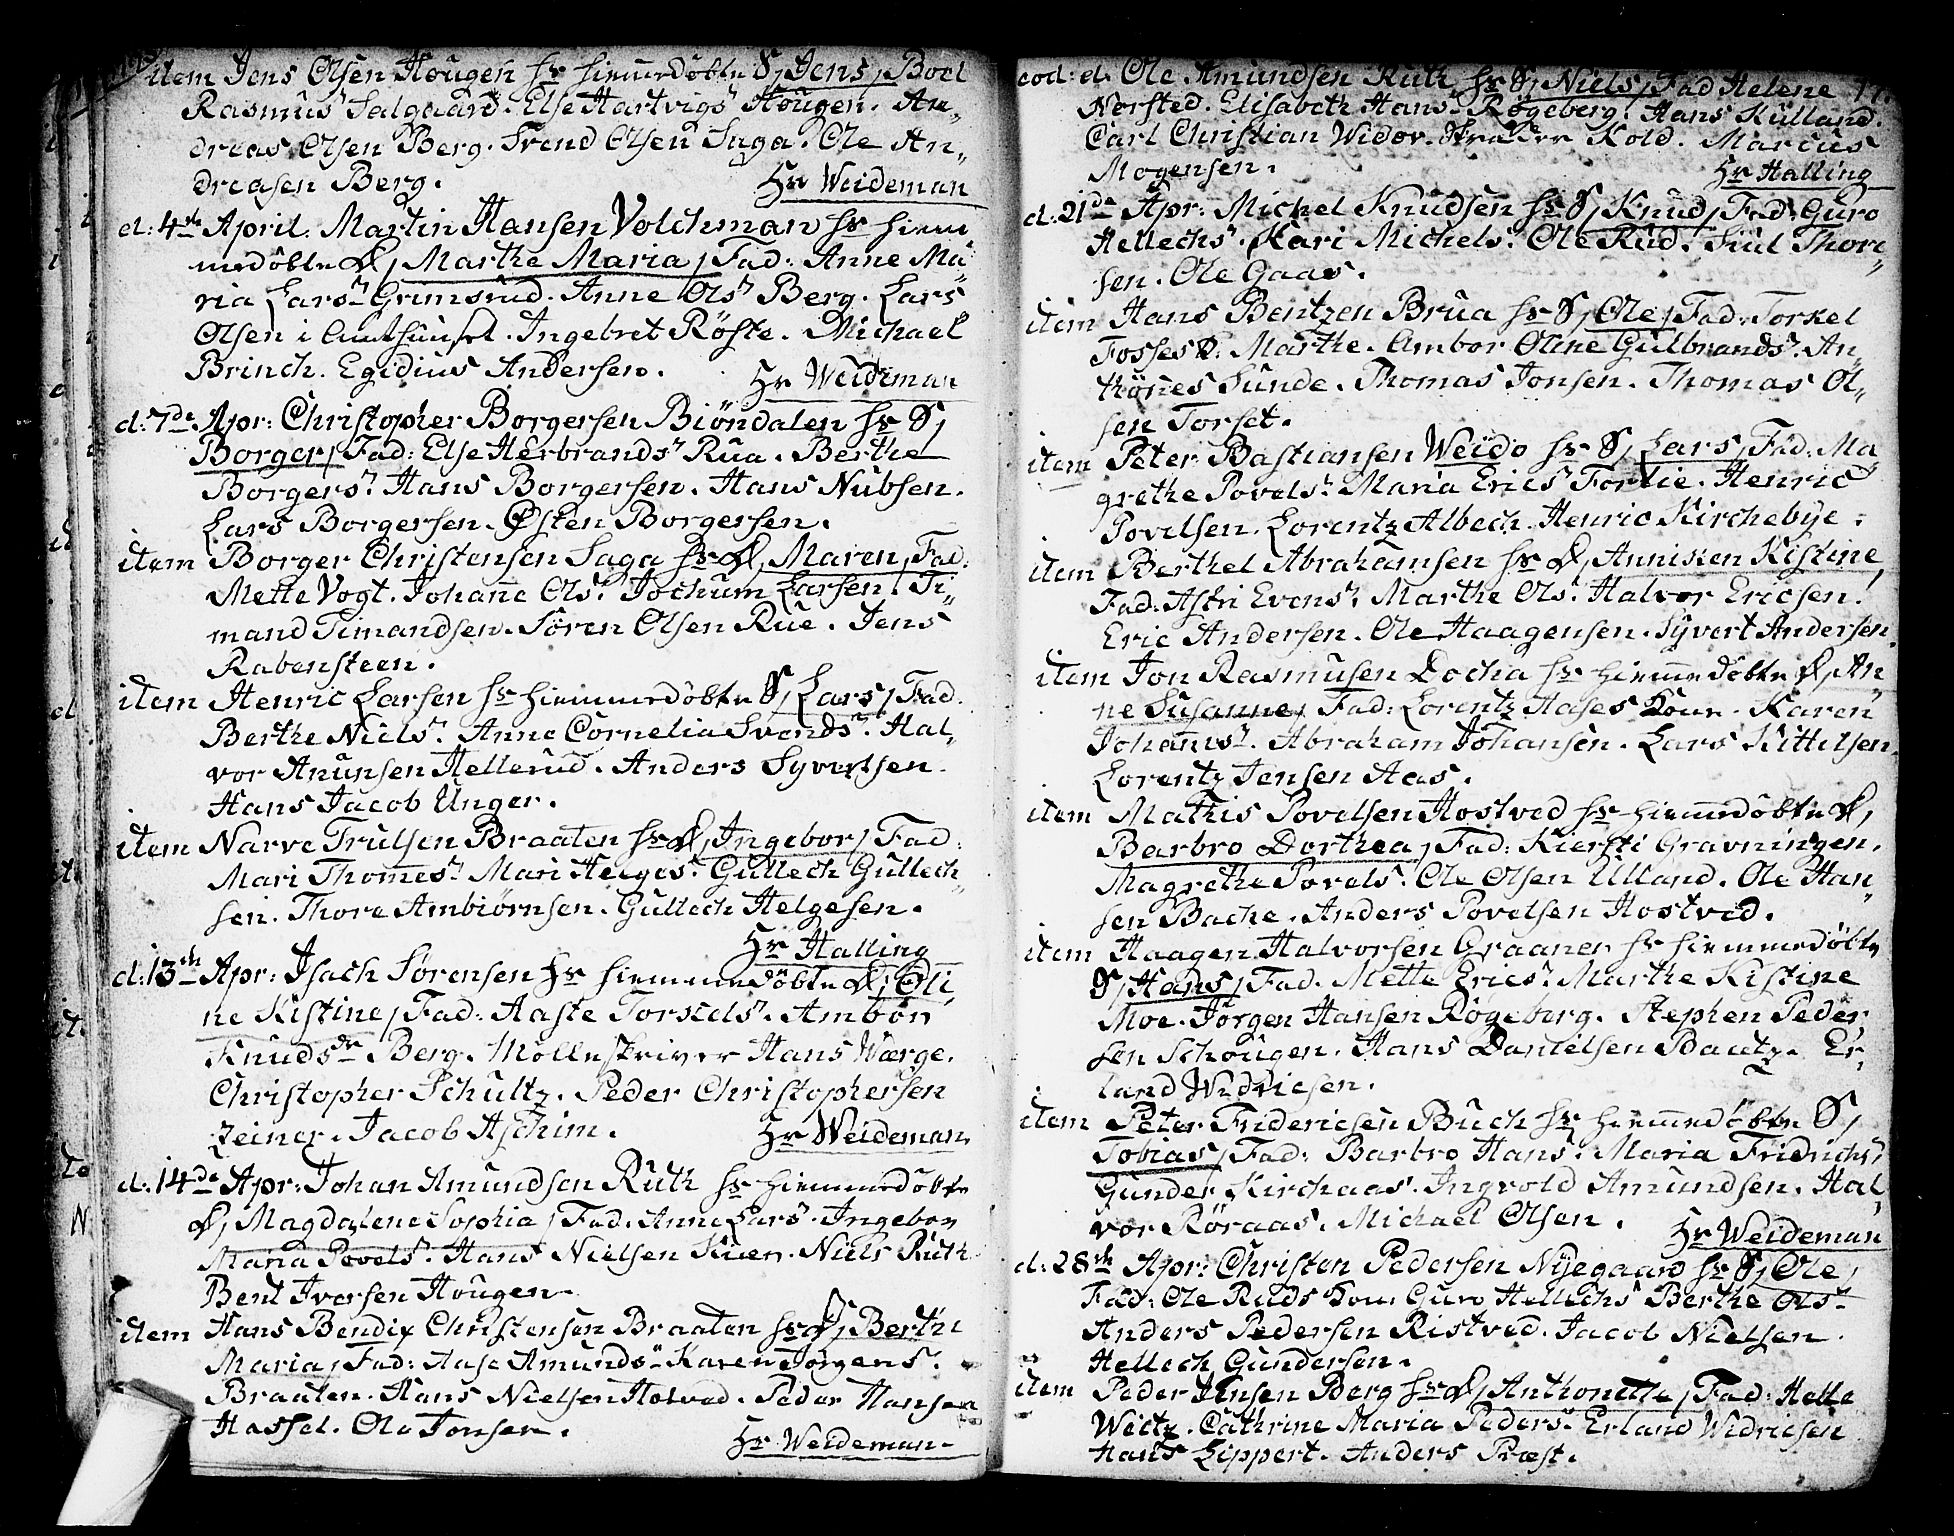 item Jens Olsen Hougen hs hiemmedöbte S, Jens, Boel
Rasmus Salgaard. Else Hartvigs Hougen. An„
dreas Olsen Berg. Trend Olsen Saga. Ole An„
dreasen Berg.
Hr Weideman
d: 4de April. Martin Hansen Volchman hs hiem
medöbte D, Marthe Maria, Fad: Anne Ma„
ria Larsr Grimsrud. Anne Olsr Berg. Lars
Olsen i Amthuuset. Ingebret Röste. Michael
Brinch. Egidius Andersen.
Hr Weideman
d: 7de Apr: Christopher Borgersen Biöndalen hs S,
Borger, Fad: Else Herbrandsr Rua. Berthe
Borgersr Hans Borgersen. Hans Nubsen.
Lars Borgersen. Østen Borgersen.
item Borger Christensen Saga hs D, Maren, Fad:
Mette Vogt. Johanne Olsr Jochum Larsen. Ti„
mand Timandsen. Sören Olsen Rue. Jens
Rabensteen.
item Henric Larsen hs hiemmedöbte S, Lars, Fad.
Berthe Nielsr. Anne Cornelia Svendsr. Hal„
vor Anunsen Hellerud. Anders Syvertsen.
Hans Jacob Unger.
item Narve Trulsen Braaten hs D, Ingebor, Fad:
Mari Thomesr Mari Helgesr Gullech Gullech„
sen. Thore Ambiörnsen. Gullech Helgesen.
Hr Halling
d: 13de Apr: Isach Sörensen hs hiemmedöbte D, Oli„
ne Kistine, Fad: Aaste Torkels. Ambör
Knudsdr Berg. Mölleskriver Hans Wærge.
Christopher Schultz. Peder Christophersen
Zeiner. Jacob Aschim.
Hr Weideman
d: 14de Apr: Johan Amundsen Ruth hs hiemmedöbte
D, Magdalene Sophia, Fad. Anne Lars. Ingebor
Maria Povels. Hans Nielsen Kiær. Niels Ruth
Bent Iversen Hougen.
item Hans Bendix Christensen Braaten hs D, Berthe
Maria, Fad: Aase Amunds Karen Jörgens.
Braaten. Hans Nielsen Holved. Peder Hansen
Hassel. Ole Jonsen.
Hr Weideman.
eod: d. Ole Amundsen Ruth hs S, Niels, Fad Helene 77.
Norsted. Elisabeth Hans. Rögeberg. Hans Kulland.
Carl Christian Widor. Kold. Marcus
Mogensen.
Hr Halling
d: 21de Apr: Michel Knudsen hs S, Knud, Fad: Guro
Hellechs. Kari Michels. Ole Rud. Siul Thor„
sen. Ole Gaas.
item Hans Bentzen Brua hs S, Ole, Fad. Torkel
Fosses K. Marthe. Ambor Oline Gulbrands. An„
thönes Sunde. Thomas Jonsen. Thomas Ol„
sen Torset.
item Peter Bastiansen Weido hs S, Lars, Fad: Ma
grethe Povelsr Maria Erics Fortie. Henric
Povelsen. Lorentz Albech. Henric Kirchebye.
item Berthel Abrahamsen hs D, Annisken Kistine,
Fad: Astri Evensr Marthe Ols. Halvor Ericsen.
Eric Andersen. Ole Haagensen. Syvert Andersen.
item Jon Rasmusen Docha hs hiemmedöbte D, An„
ne Susanne, Fad: Lorentz Hases Kone. Karen
Johannesr. Abraham Johansen. Lars Kittilsen.
Lorentz Jensen Aas.
item Mathis Povelsen Hostved hs hiemmedöbte D,
Barbro Dorthea, Fad: Kiersti Gravningen.
Magrethe Povels. Ole Olsen Ulland. Ole Han„
sen Bache. Anders Povelsen Hostved.
item Haagen Halvorsen Graaner hs hiemmedöbte
S, Hans, Fad. Mette Ericsr Marthe Kistine
Moe. Jörgen Hansen Rögeberg. Stephen Peder
sen Schougen. Hans Danielsen Bautz. Er„
land Widricsen.
item Peter Fridericsen Buch hs hiemmedöbte S,
Tobias, Fad: Barbro Hans. Maria Fridrichsr
Gunder Kirchaas. Ingvold Amundsen. Hal„
vor Röraas. Michael Olsen.
Hr Weideman
d: 28de Apr: Christen Pedersen Nyegaard hs S, Ole,
Fad: Ole Ruds Kone Guro Hellechs Berthe Ols.
Anders Pedersen Ristved. Jacob Nielsen.
Hellech Gundersen.
item Peder Jensen Berg hs D, Anthonette, Fad: Helle
Weitz. Cathrine Maria Peders. Erland Widricsen
Hans Lippert. Anders Præst.